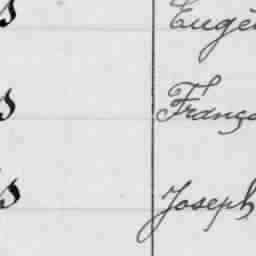 s Eugè
s Franço
s Joseph